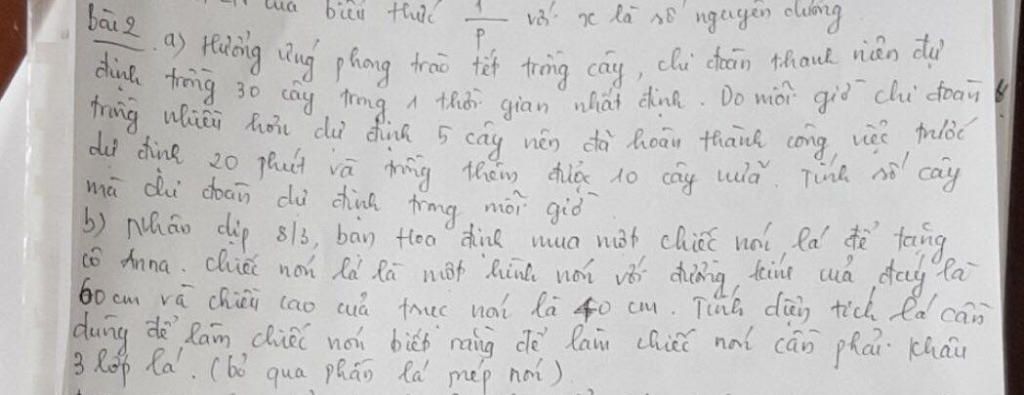 của biểu thức 1/P với x là số nguyên dương
bài 2 a) Hưởng ứng phong trào tết trồng cây, chi đoàn thanh niên dự
định trồng 30 cây trong 1 thời gian nhất định. Do mỗi giờ chi đoàn
trồng nhiều hơn dự định 5 cây nên đã hoàn thành công việc trước
dự định 20 phút và trồng thêm được 10 cây nữa. Tính số cây
mà chi đoàn dự định trong mỗi giờ
b) Nhân dịp 8/3, bạn Hoa định mua một chiếc nón lá để tặng
cô Anna. Chiếc nón lá là một hình nón với đường kính của đáy là
60 cm và chiều cao của trục nón là 40 cm. Tính diện tích lá cần
dùng để làm chiếc nón biết rằng để làm chiếc nón cần phải khâu
3 lớp lá. (bỏ qua phần lá mép nón)